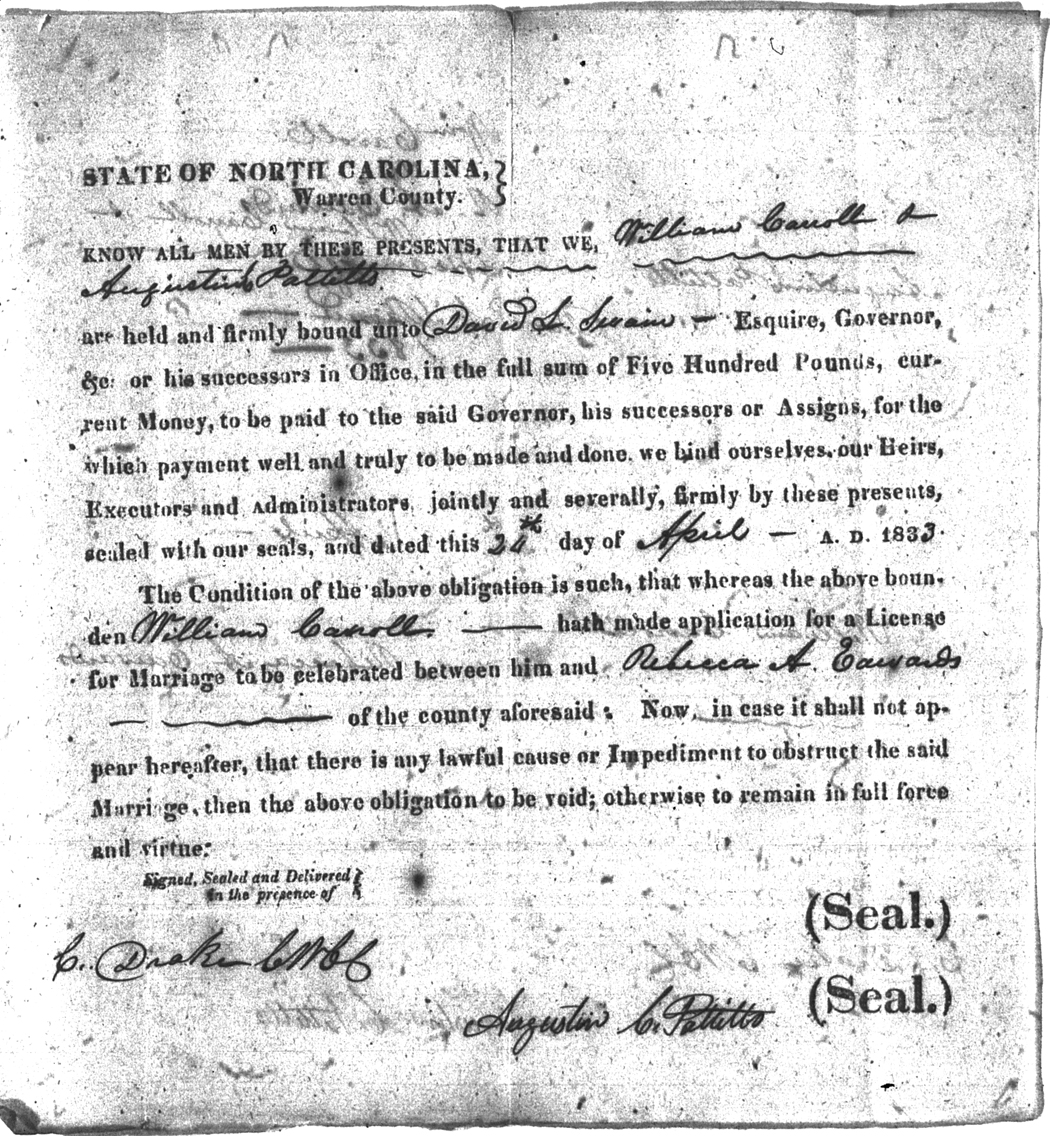 STATE OF NORTH CAROLINA,
Warren County.
KNOW ALL MEN BY THESE PRESENTS, THAT WE, William Carroll &
Augustin Pattillo
are held and firmly bound unto David L. Swain — Esquire, Governor,
&c: or his successors in Office, in the full sum of Five Hundred Pounds, cur-
rent Money, to be paid to the said Governor, his successors or Assigns, for the
which payment well and truly to be made and done, we bind ourselves, our Heirs,
Executors and Administrators, jointly and severally, firmly by these presents,
sealed with our seals, and dated this 24th day of April — A. D. 1833.
The Condition of the above obligation is such, that whereas the above boun-
den William Carroll — hath made application for a License
for Marriage to be celebrated between him and Rebecca A. Edwards
— of the county aforesaid: Now, in case it shall not ap-
pear hereafter, that there is any lawful cause or Impediment to obstruct the said
Marriage, then the above obligation to be void; otherwise to remain in full force
and virtue:
Signed, Sealed and Delivered
in the presence of
(Seal.)
C. Drake CWCC
(Seal.)
Augustin C. Pattillo